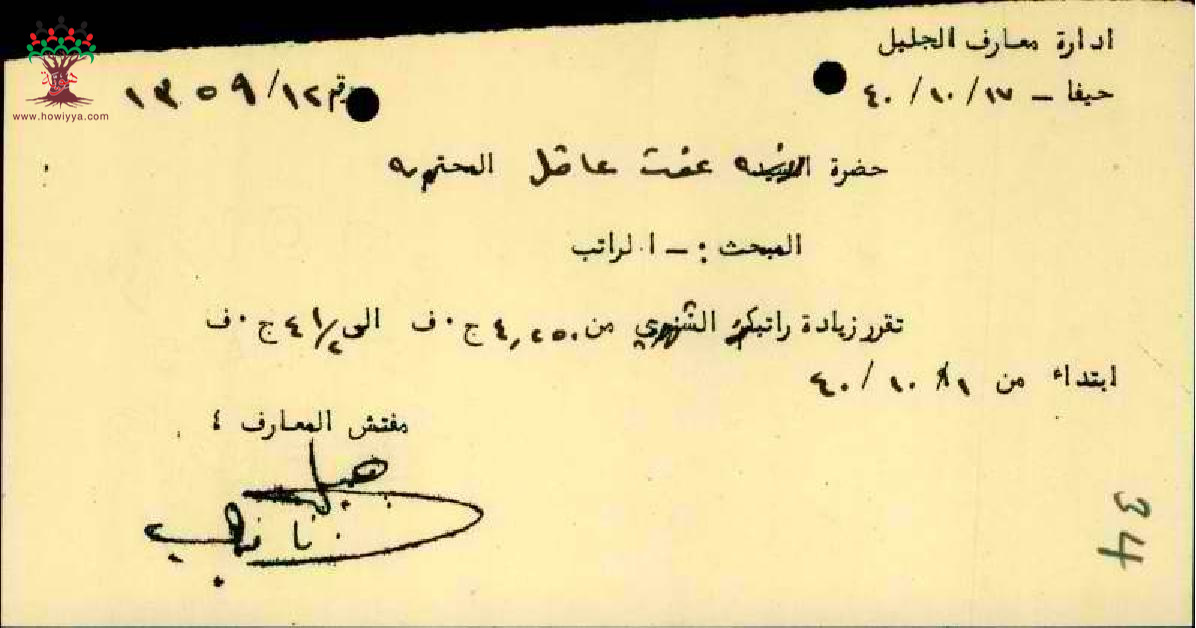 ادارة معارف الجليل
حيفا - ١٧ / ١٠ / ٤٠
رقم ١٢ / ١٣٥٩
حضرة عفت عاقل المحترمه
المبحث : - الراتب
تقرر زيادة راتبك الشهري من ٤,٢٥٠ ج٠ف الى ٤ ١/٢ ج٠ف
ابتداء من ١ / ١٠ / ٤٠
مفتش المعارف ؛
34
www.howiyya.com